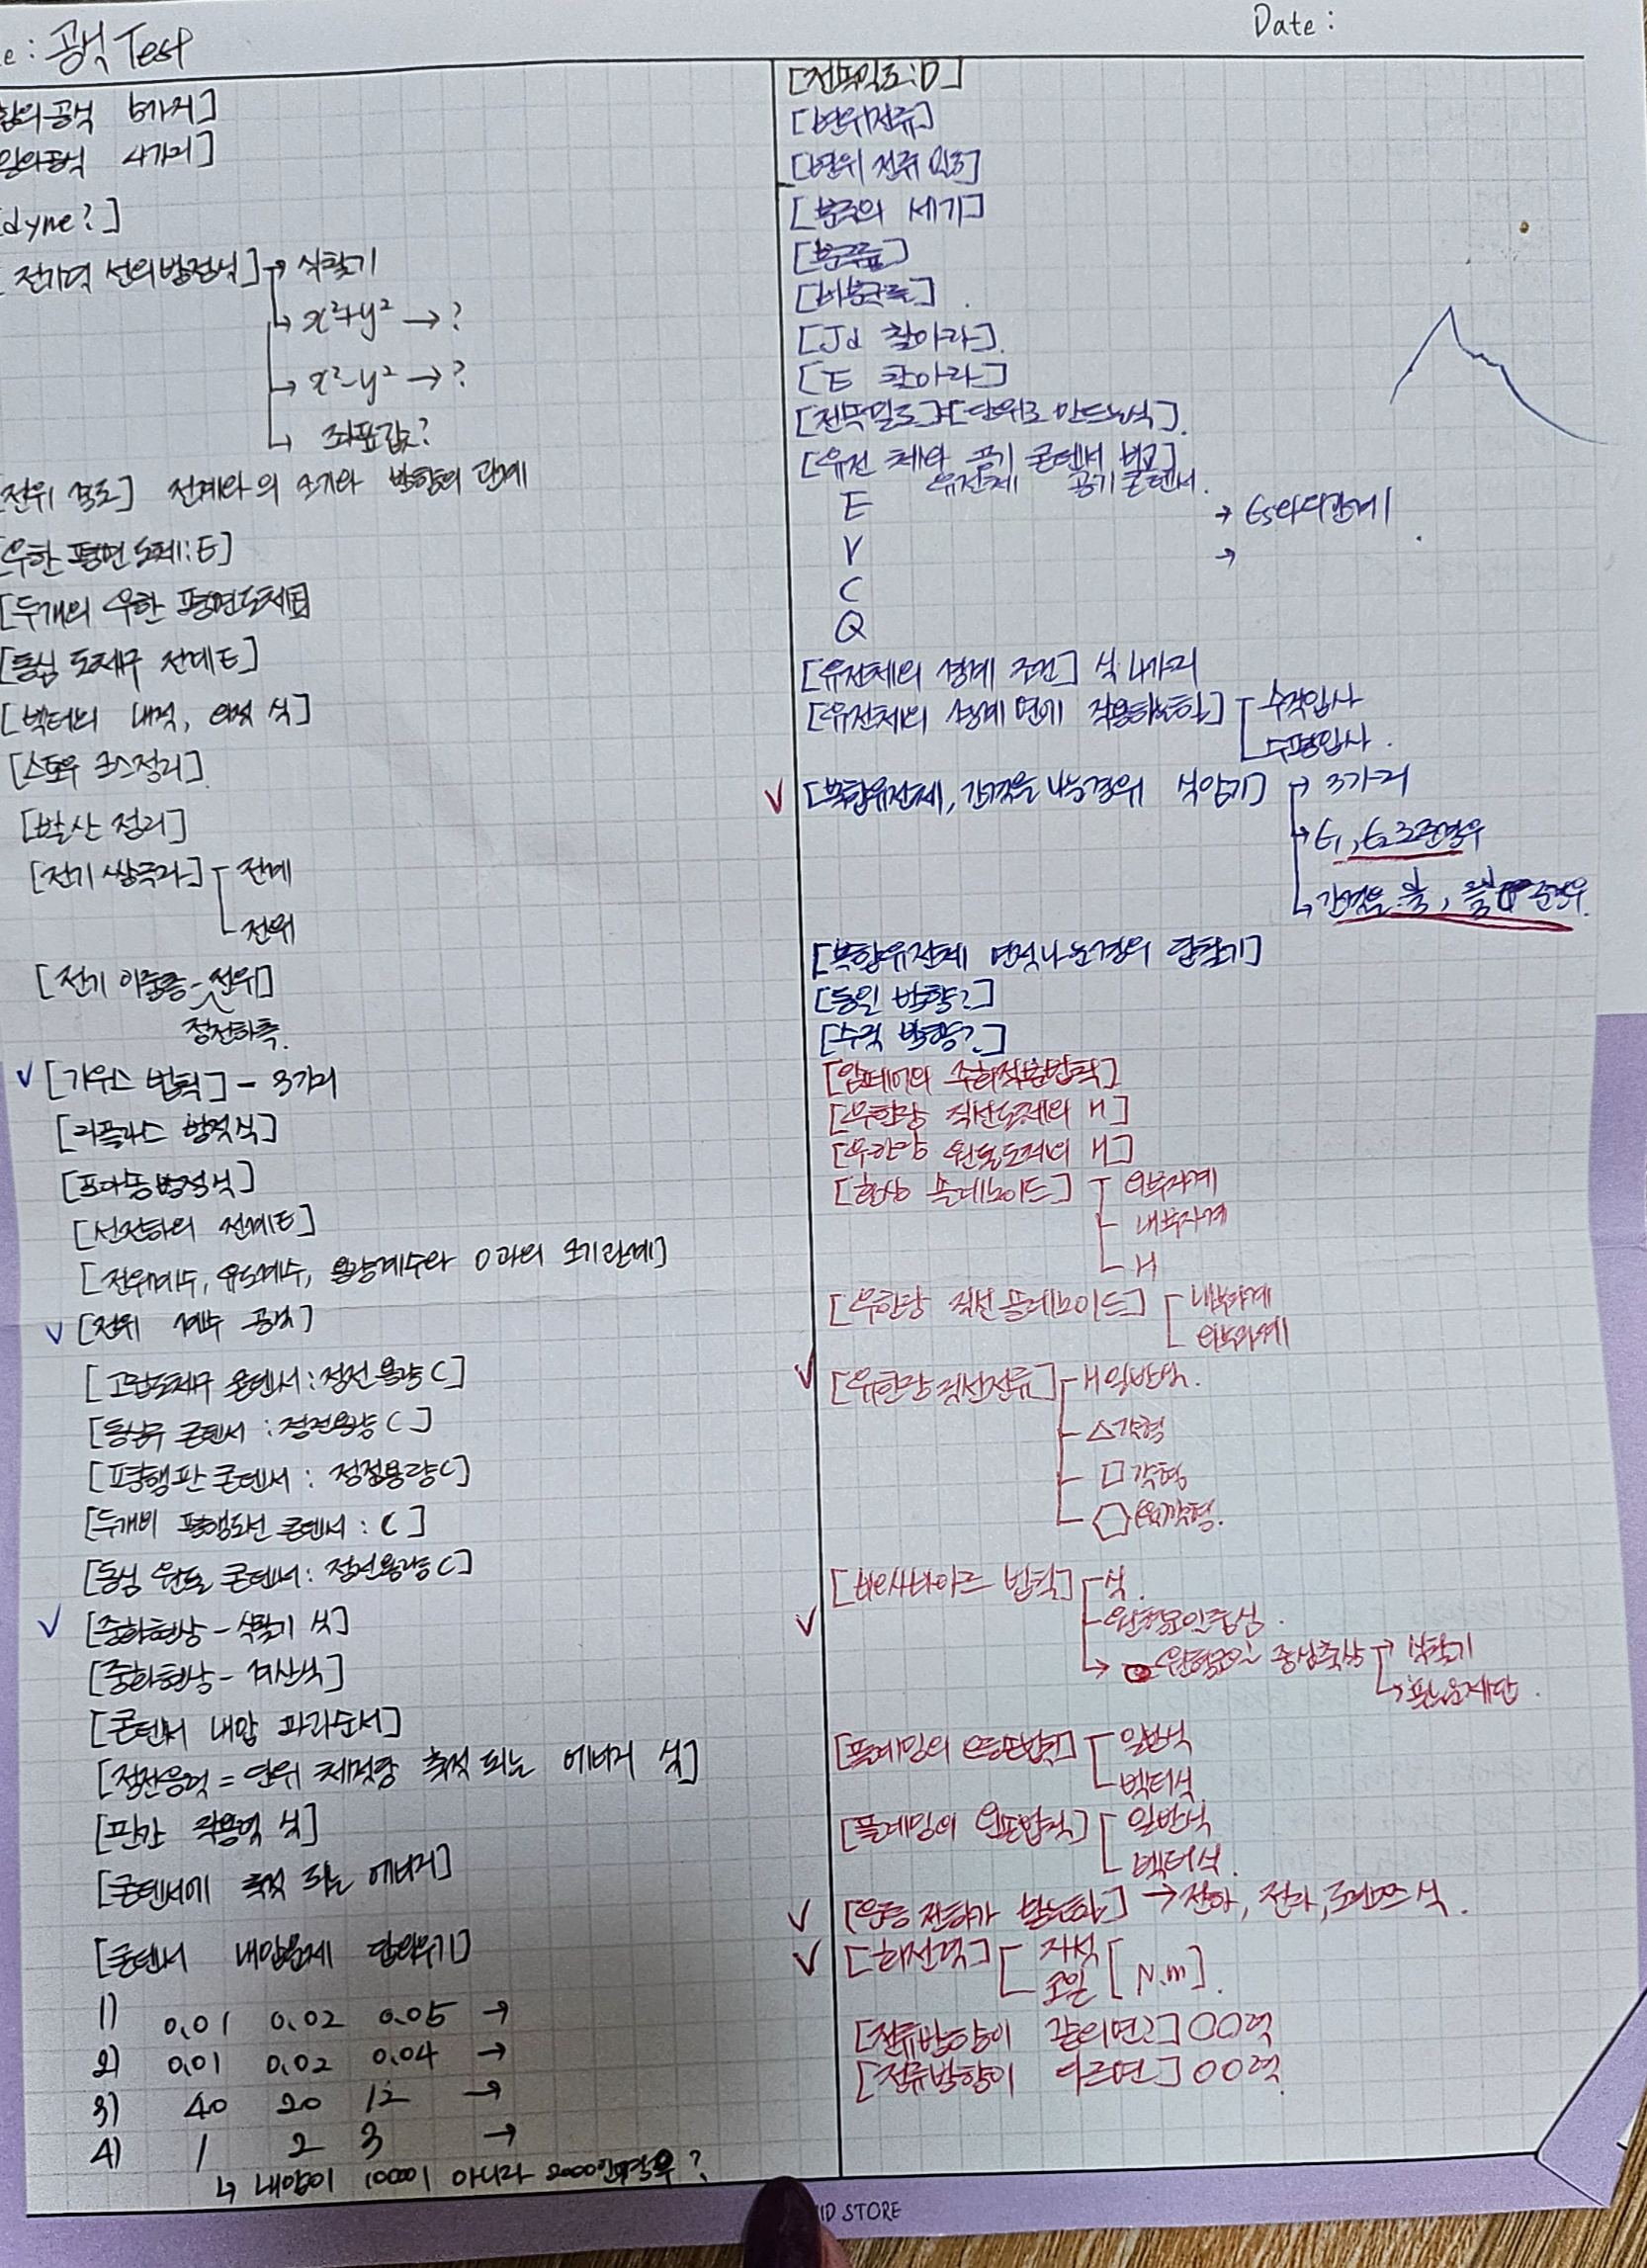 e : 공식 Test
Date :
힘의 공식 6가지]
일의 공식 4가지]
dyne?]
전기력 선의 방정식] → 식찾기
↳ x²+y² → ?
→ x²-y² → ?
↳ 좌표값?
전위 경도] 전계와의 크기와 방향의 관계
[무한 평면 도체:E]
[두개의 무한 평면도체E]
[동심 도체구 전계E]
[벡터의 내적, 외적 식]
[스토우 크스정리]
[발산 정리]
[전기 쌍극자] 전계
전위
[전기 이중층 - 전위]
정전하측.
✓ [가우스 법칙] - 3가지
[라플라스 방정식]
[포아송 방정식]
[선전하의 전계E]
[전위계수, 유도계수, 용량계수와 0과의 크기관계]
✓ [전위 계수 공식]
[고립도체구 콘덴서 : 정전 용량 C]
[동심구 콘덴서 : 정전용량 C]
[평행판 콘덴서 : 정전용량C]
[두개비 평행도선 콘덴서 : C]
[동심 원통 콘덴서 : 정전용량 C]
✓ [중화현상 - 식찾기 식]
[중화현상 - 계산식]
[콘덴서 내압 파괴순서]
[정전응력 = 단위 체적당 축적 되는 에너지 식]
[판간 작용력 식]
[콘덴서에 축적 되는 에너지]
[콘덴서 내압문제 답외우기]
1) 0.01 0.02 0.05 →
2) 0.01 0.02 0.04 →
3) 40 20 12 →
4) 1 2 3 →
↳ 내압이 1000이 아니라 2000인경우 ?
[전속밀도:D]
[변위전류]
[변위 전류 밀도]
[분극의 세기]
[분극률]
[비분극률]
[Jd 찾아라].
[E 찾아라]
[전속밀도]=[단위로 만드는식].
[유전 체와 공기 콘덴서 비교]
유전체 공기 콘덴서.
E → εs와의관계
V →
C
Q
[유전체의 경계 조건] 식 4가지
[유전체의 경계 면에 작용하는힘] 수직입사
수평입사.
✓ [복합유전체, 간격을 나눈경우 식암기] → 3가지
→ ε1, ε2 준경우
↳ 간격을 준경우.
[복합유전체 면적나눈경우 답찾기]
[동일 방향?]
[수직 방향?]
[암페어의 주회적분법칙]
[무한장 직선도체의 H]
[무한장 원통도체의 H]
[환상 솔레노이드] 외부자계
내부자계
H
[무한장 직선 솔레노이드] 내부자계
외부자계
✓ [유한장 직선전류] H 일반식.
△각형
□각형
⬡육각형.
✓ [비오사바르 법칙] 식.
원형코일중심.
→ 원형코일 중심축상 → 식찾기
↳ 푸는문제답.
[플레밍의 왼손법칙] 일반식
벡터식
[플레밍의 오른손법칙] 일반식
벡터식.
✓ [운동 전하가 받는힘] → 전하, 전자, 로렌쯔 식.
✓ [회전력] 자석
코일 [N.m].
[전류방향이 같으면?] OO력
[전류방향이 다르면] OO력.
ID STORE